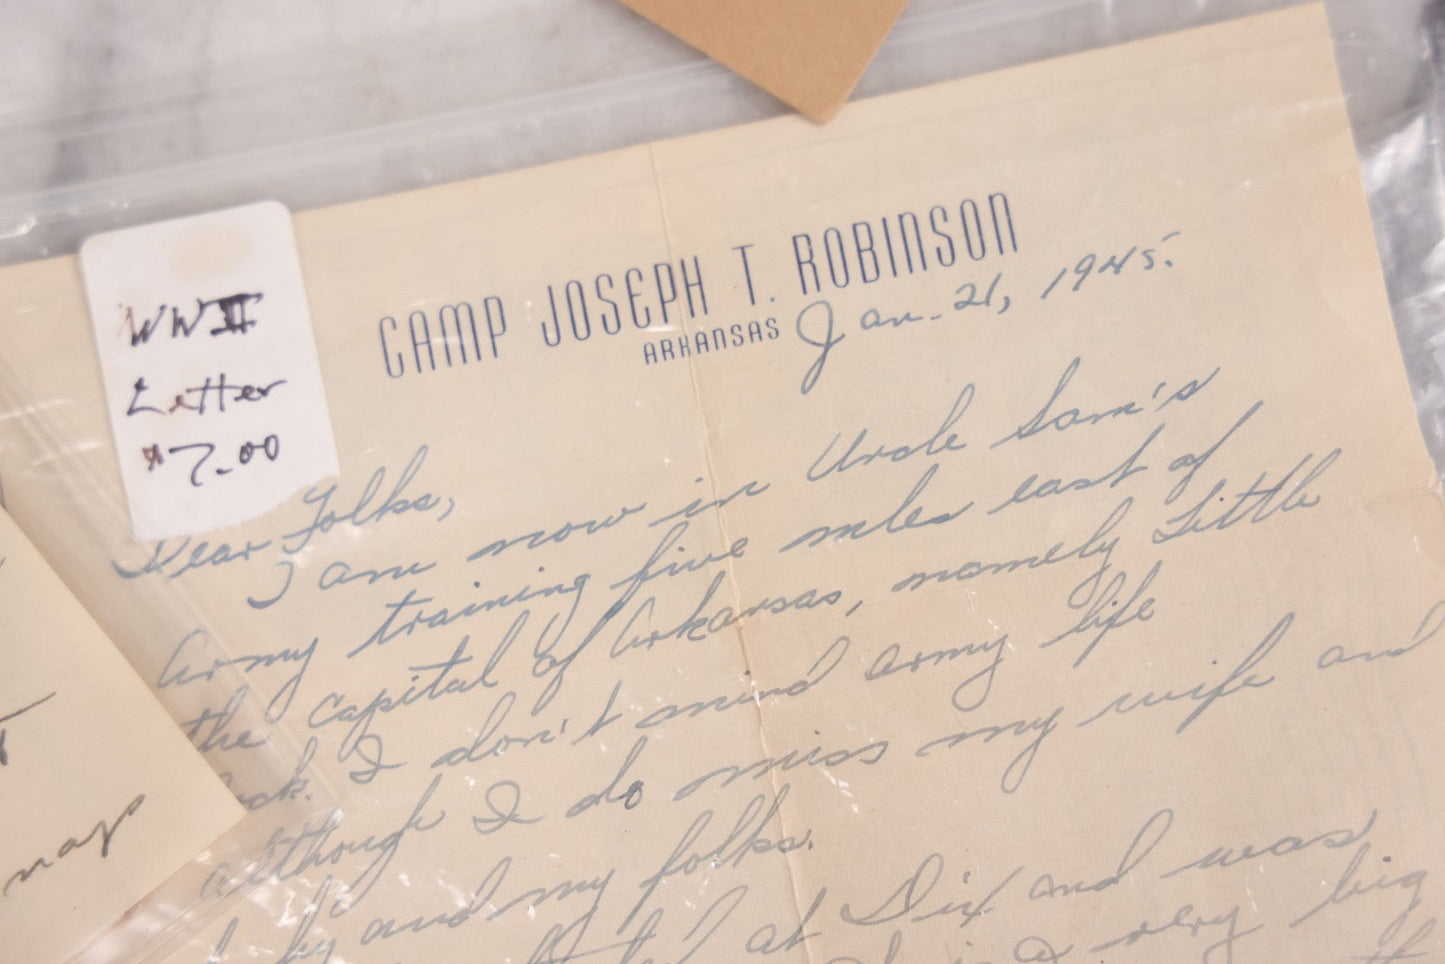 CAMP JOSEPH T. ROBINSON
ARKANSAS
Jan. 21, 1945.
WW II
Letter
$7.00
Dear Folks,
I am now in Uncle Sam's
Army training five miles east of
the capital of Arkansas, namely Little
ck. I don't mind army life
although I do miss my wife and
by and my folks.
at Dix and was
a very big
map